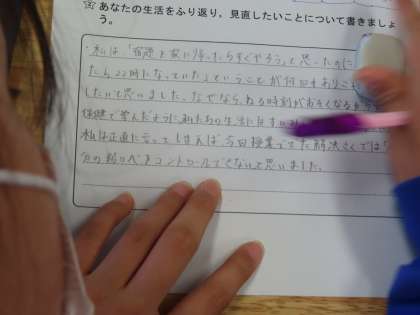 あなたの生活をふり返り，見直したいことについて書きましょ
う。
私は「宿題を家に帰ったらすぐやろう」と思ったのに
たら22時になっていた」ということが何回もありこ
したいと思いました。なぜなら、ねる時刻がおそくなる
保健で学んだように
私は正直に言ってしまえば今日授業ででた解決さくでは
分の コントロールできないと思いました。